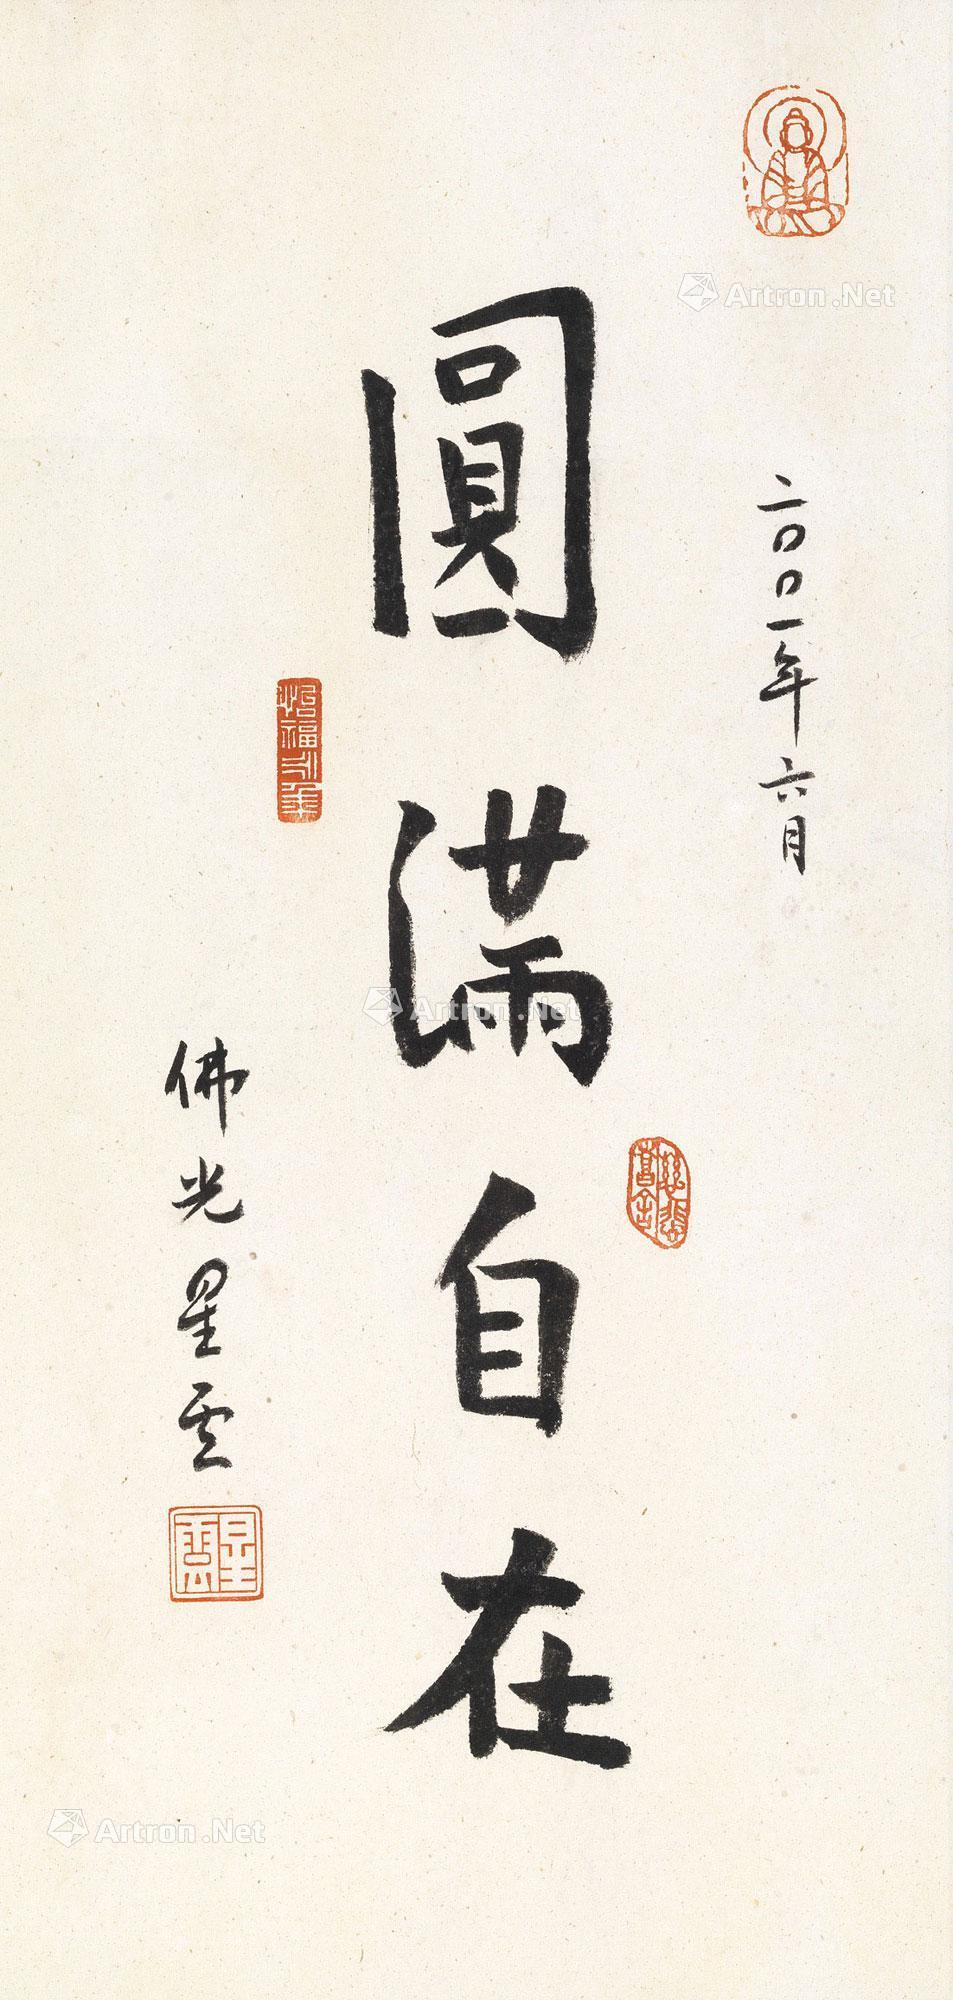 二〇〇一年六月
圓滿自在
佛光星云
星雲
Artron.Net
Artron.Net
Artron.Net